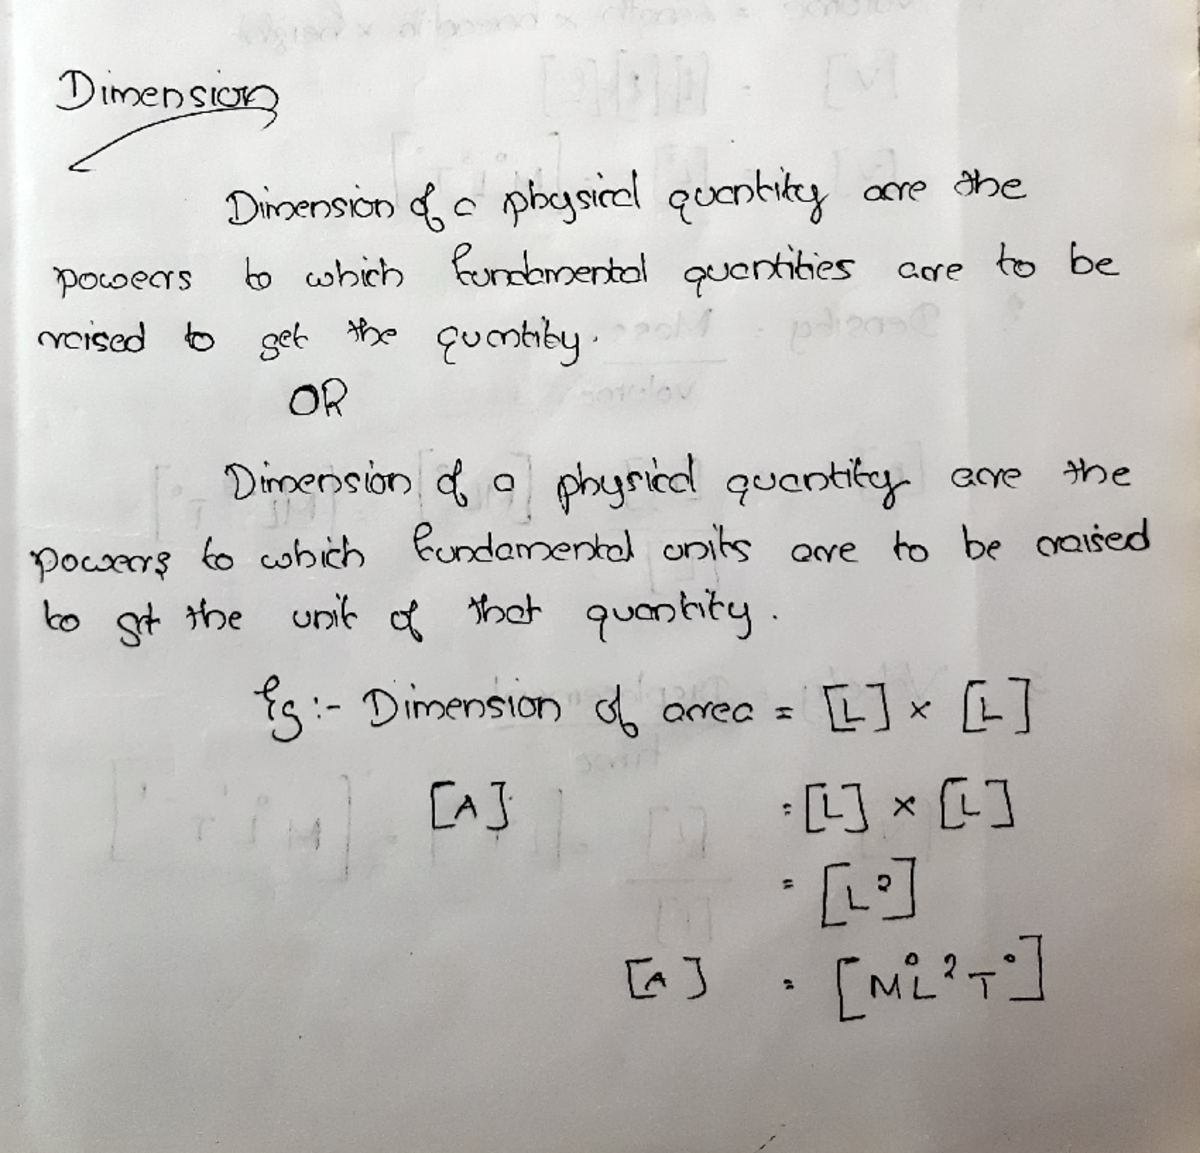 Dimension
Dimension of a physical quantity are the
powers to which fundamental quantities are to be
raised to get the quantity.
OR
Dimension of a physical quantity are the
powers to which fundamental units are to be raised
to get the unit of that quantity.
Eg :- Dimension of area = [L] × [L]
[A] = [L] × [L]
= [L²]
[A] = [M⁰L²T⁰]